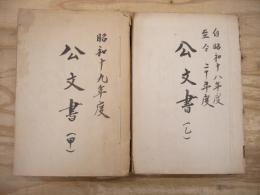 昭和十九年度
公文書(甲)
自昭和十八年度
至仝二十年度
公文書(乙)